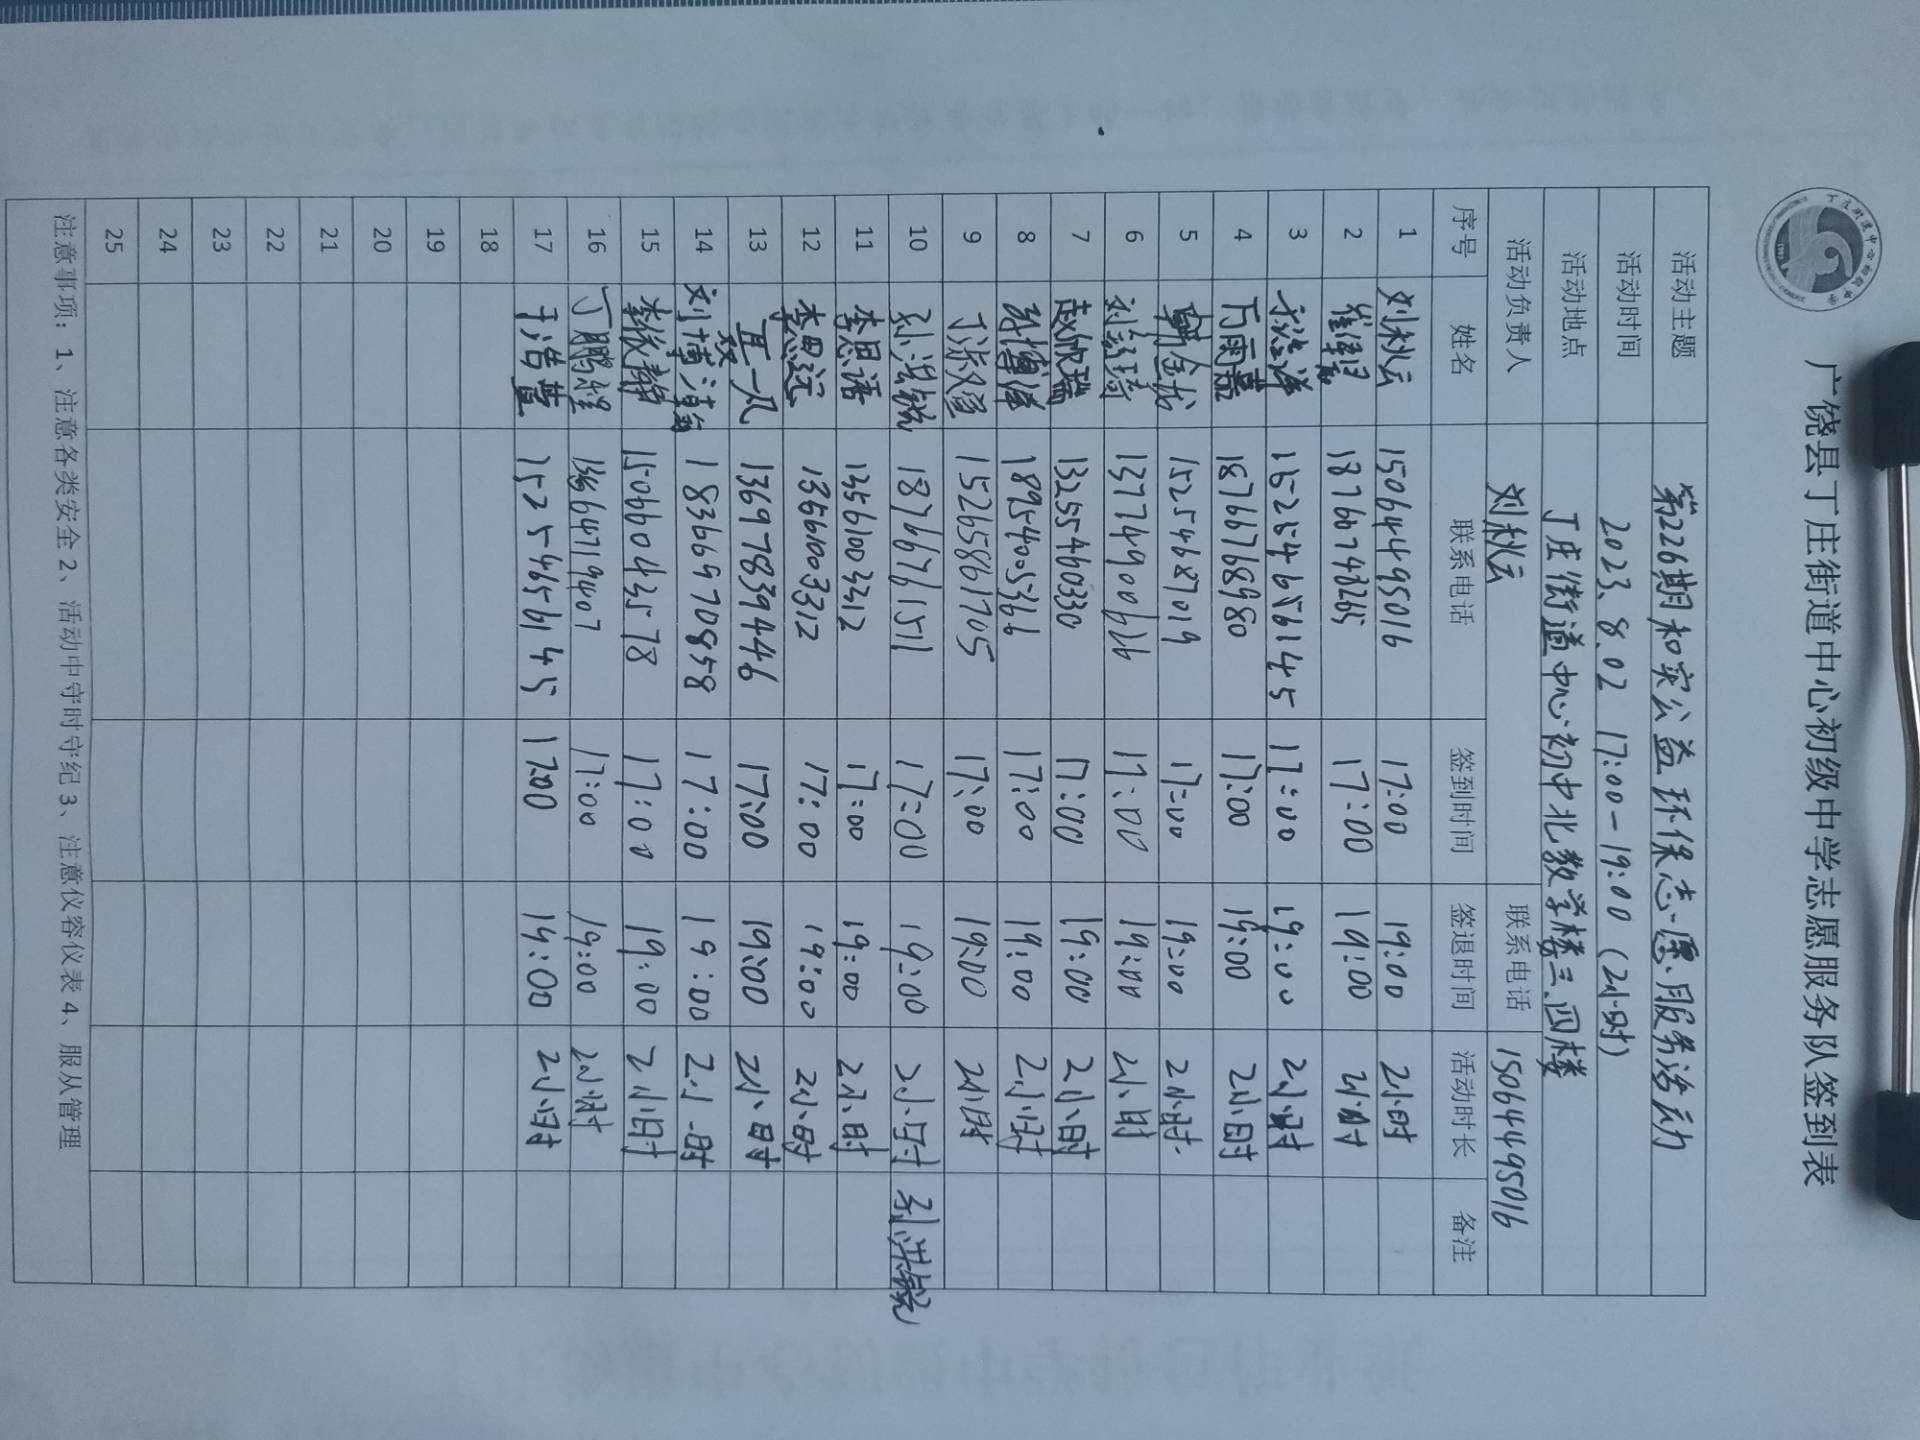 广饶县丁庄街道中心初级中学志愿服务队签到表
活动主题 第226期和实公益环保志愿服务活动
活动时间 2023.8.02 17:00-19:00 (2小时)
活动地点 丁庄街道中心初中北教学楼三.四楼
活动负责人 刘秋云 联系电话 15064495016
序号 姓名 联系电话 签到时间 签退时间 活动时长 备注
1 刘秋云 15064495016 17:00 19:00 2小时
2 18766748265 17:00 19:00 2小时
3 15254656145 17:00 19:00 2小时
4 万雨嘉 18766768980 17:00 19:00 2小时
5 15254687019 17:00 19:00 2小时
6 13774900616 17:00 19:00 2小时
7 赵欣瑞 13255460330 17:00 19:00 2小时
8 18954605366 17:00 19:00 2小时
9 15265861705 17:00 19:00 2小时
10 孙洪锐 18766761511 17:00 19:00 2小时 孙洪锐
11 李思语 13561003312 17:00 19:00 2小时
12 李思远 13561003312 17:00 19:00 2小时
13 13697839446 17:00 19:00 2小时
14 刘博瀚 18366970858 17:00 19:00 2小时
15 15066043578 17:00 19:00 2小时
16 13864719407 17:00 19:00 2小时
17 15254656145 17:00 19:00 2小时
18
19
20
21
22
23
24
25
注意事项：1、注意各类安全 2、活动中守时守纪 3、注意仪容仪表 4、服从管理